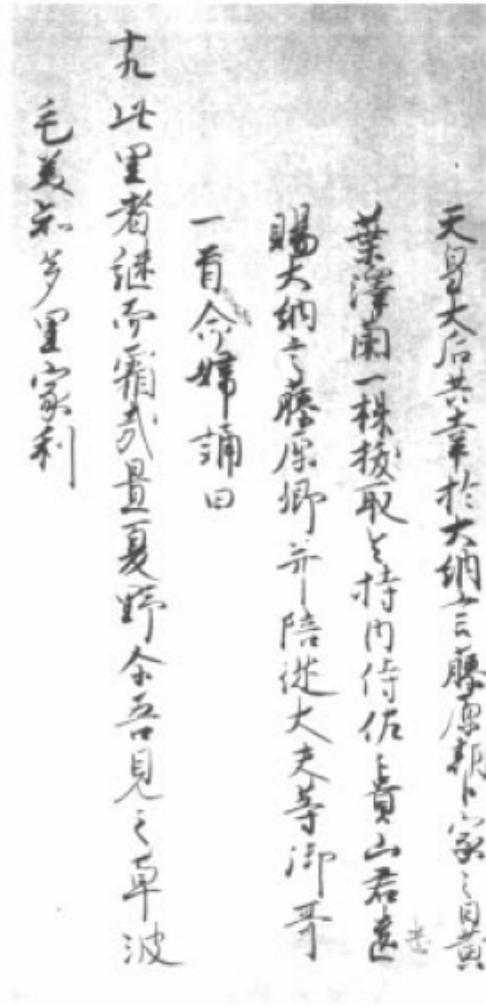 天皇大后共幸於大納言藤原朝臣家之日黄
葉澤蘭一株抜取令持内侍佐々貴山君遣
賜大納言藤原卿并陪従大夫等御哥
一首命婦誦曰
十九 此里者継而霜哉置夏野尓吾見之草波
毛美知多里家利